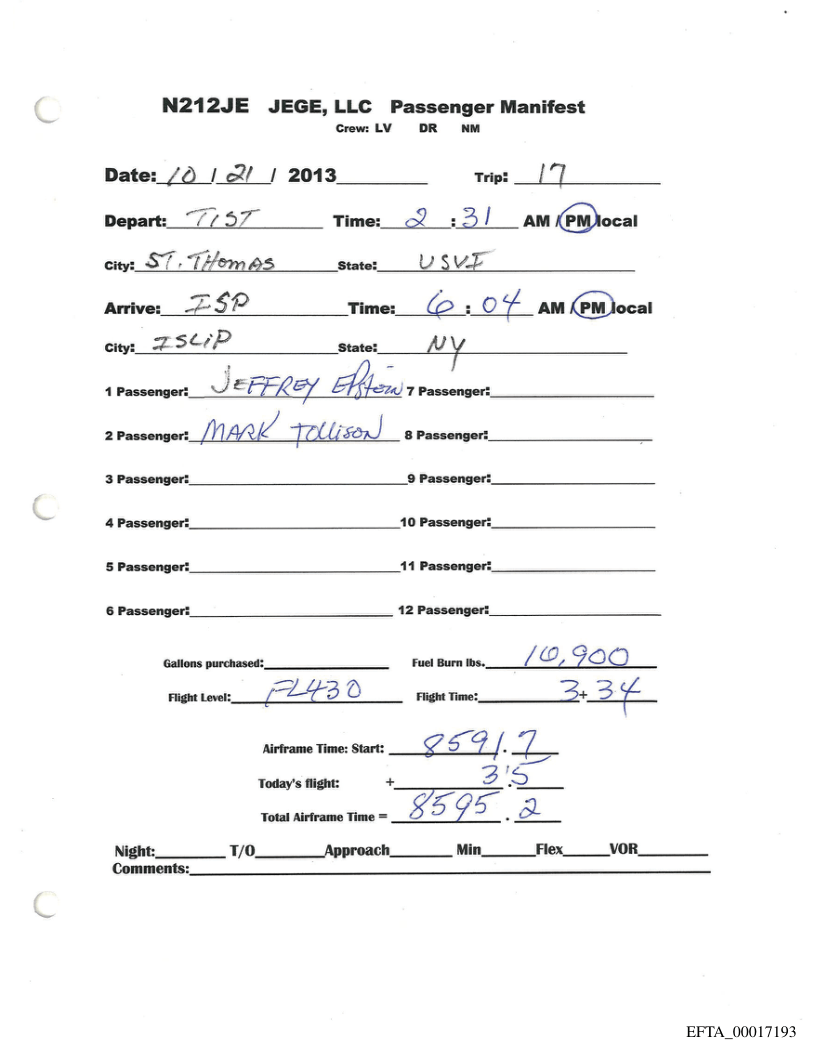 N212JE JEGE, LLC Passenger Manifest
Crew: LV DR NM
Date: 10 / 21 / 2013 Trip: 17
Depart: TIST Time: 2 : 31 AM / PM local
City: ST. THOMAS State: USVI
Arrive: ISP Time: 6 : 04 AM / PM local
City: ISLIP State: NY
1 Passenger: JEFFREY EPstein 7 Passenger:
2 Passenger: MARK TOLLISON 8 Passenger:
3 Passenger: 9 Passenger:
4 Passenger: 10 Passenger:
5 Passenger: 11 Passenger:
6 Passenger: 12 Passenger:
Gallons purchased: Fuel Burn lbs. 10,900
Flight Level: FL430 Flight Time: 3 + 34
Airframe Time: Start: 8591 . 7
Today's flight: + 3 . 5
Total Airframe Time = 8595 . 2
Night: T/O Approach Min Flex VOR
Comments:
EFTA_00017193